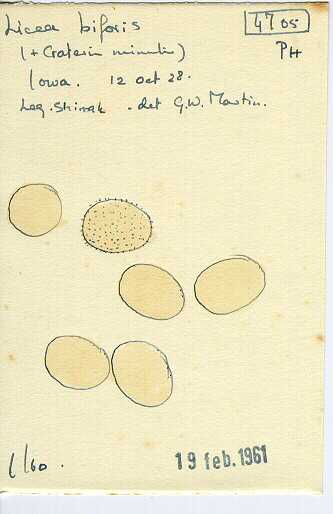 Licea biforis
4705
(+ Craterium minutum)
PH
Iowa. 12 Oct 28.
Leg. Shirrak. det G.W. Martin.
1/60.
19 feb. 1961